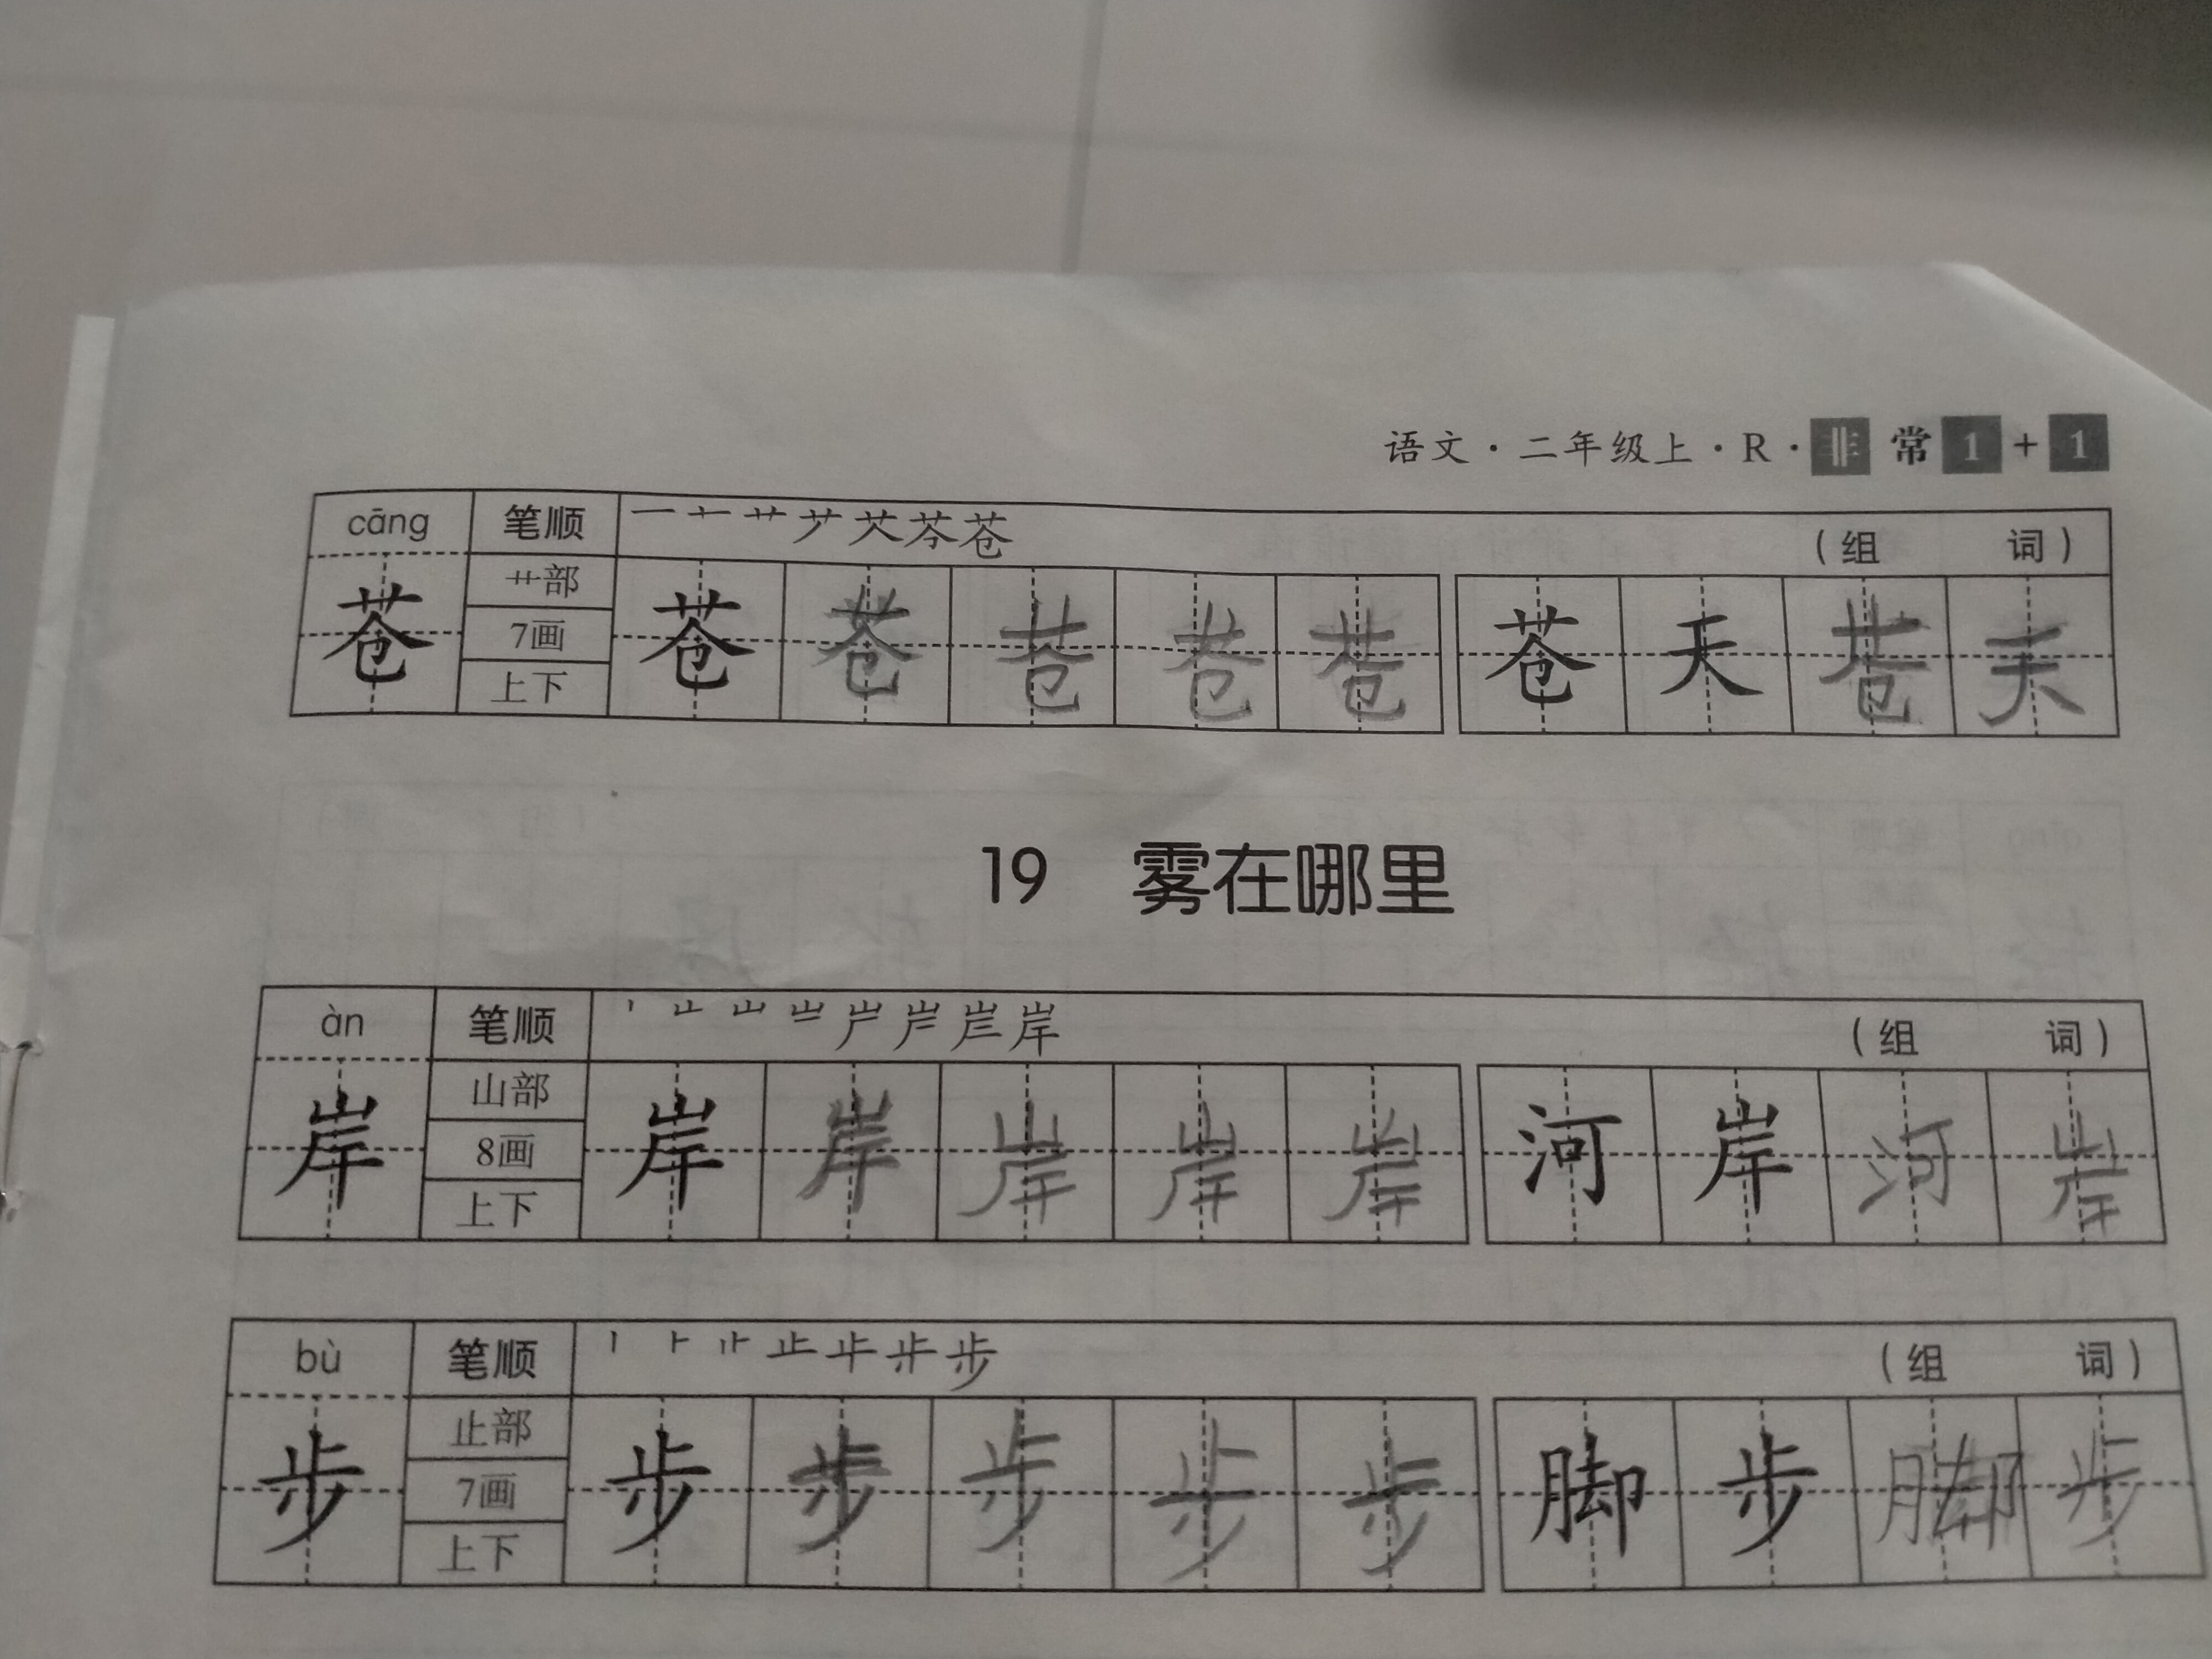 语文·二年级上·R·非常1+1
cāng 笔顺 一 艹 艹 艹 芡 芩 苍 (组 词)
苍 艹部 7画 上下 苍 苍 苍 苍 苍 苍 天 苍 天
19 雾在哪里
àn 笔顺 岸 (组 词)
岸 山部 8画 上下 岸 岸 岸 岸 岸 河 岸 河 岸
bù 笔顺 丨 ⺊ 止 步 (组 词)
步 止部 7画 上下 步 步 步 步 步 脚 步 脚 步